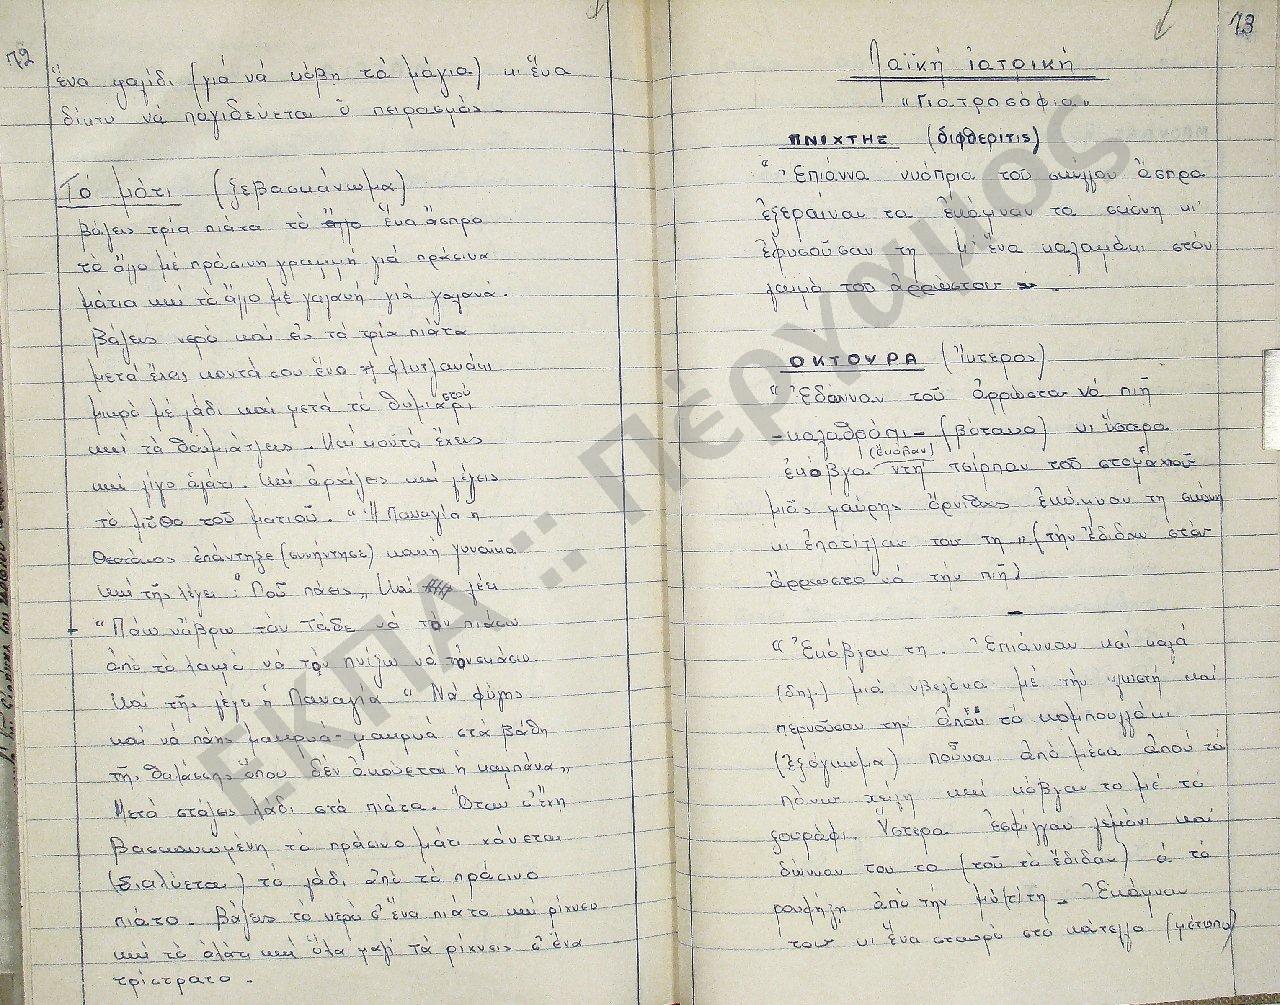 72
ἕνα ψαλίδι (γιά νά κόβη τά μάγια) κι ἕνα
δίχτυ νά παγιδεύεται ὁ πειρασμός.
Τό μάτι (ξεβασκάνωμα)
Βάζεις τρία πιάτα τό ἕνα ἄσπρο
τό ἄλλο μέ πράσινη γραμμή γιά πράσινα
μάτια καί τό ἄλλο μέ γαλανή γιά γαλανά.
Βάζεις νερό καί εἰς τά τρία πιάτα
μετά ἔχεις κοντά σου ἕνα φλυτζανάκι
μικρό μέ λάδι καί μετά τό θυμιατό
καί τά θυμιάτίζεις. Καί κοντά ἔχεις
καί λίγο ἁλάτι. Καί ἀρχίζεις καί λέγεις
τό μῦθο τοῦ ματιοῦ. "Ἡ Παναγία ἡ
Θεοτόκος ἐπάντηξε (συνήντησε) κακή γυναῖκα
καί τῆς λέγει: Ποῦ πάεις„ Καί λέει
"Πάω νἄβρω τόν τάδε νά τόν πιάσω
ἀπό τό λαιμό νά τόν πνίξω νά τόν σκάσω
Καί τῆς λέγει ἡ Παναγία "Νά φύγης
καί νά πάης μακρυά-μακρυά στά βάθη
τῆς θαλάσσης ὅπου δέν ἀκούεται ἡ καμπάνα„
Μετά στάζεις λάδι στά πιάτα. Ὅταν εἶναι
βασκανωμένη τό πράσινο μάτι χάνεται
(διαλύεται) τό λάδι ἀπό τό πράσινο
πιάτο. Βάζεις τό νερό σ' ἕνα πιάτο καί ρίχνεις
καί τό ἁλάτι καί ὅλα μαζί τά ρίχνεις σ' ἕνα
τρίστρατο.
73
Λαϊκή ἰατρική
"Γιατροσόφια„
ΠΝΙΧΤΗΣ (διφθερίτις)
"Ἐπιάννα κυόπρια τοῦ σκύλλου ἄσπρα
ἐξεραίναν τα ἐκάμναν τα σκόνη κι
ἐφυσούσαν τη μ' ἕνα καλαμάκι στόν
λαιμό τοῦ ἀρρώστου„.
ΟΚΤΟΥΡΑ (ἴκτερος)
"Ἐδώνναν τοῦ ἀρρώστου νά πιῆ
-καλαθράπι- (βότανο) κι ὕστερα
(ἐκόβαν)
ἐκόβγα ντη τσίρπαν τοῦ στομαχιοῦ
μιᾶς μαύρης ὄρνιθας ἐκάμναν τη σκόνη
κι ἐποτίτζαν του τη„ (τήν ἔδιδαν στόν
ἄρρωστο νά τήν πιῆ)
"Ἐκόβγαν τη. Ἐπιάνναν καί καλά
(δηλ.) μιά νβελόνα μέ τήν κλωστή καί
περνούσαν την ἀπού τό κομπουλλάκι
(ἐξόγκωμα) ποὖναι ἀπό μέσα ἀπού τό
πάνω χείλη καί κόβγαν το μέ τό
ξουράφι. Ὕστερα ἐσφίγγαν λεμόνι καί
δώνναν του το (τοῦ τό ἔδιδαν) ά τό
ρουφήξη ἀπό τήν μύ(τ)τη. Ἐκάμναν
του κι ἕνα σταυρό στό κούτελλο (μέτωπο)